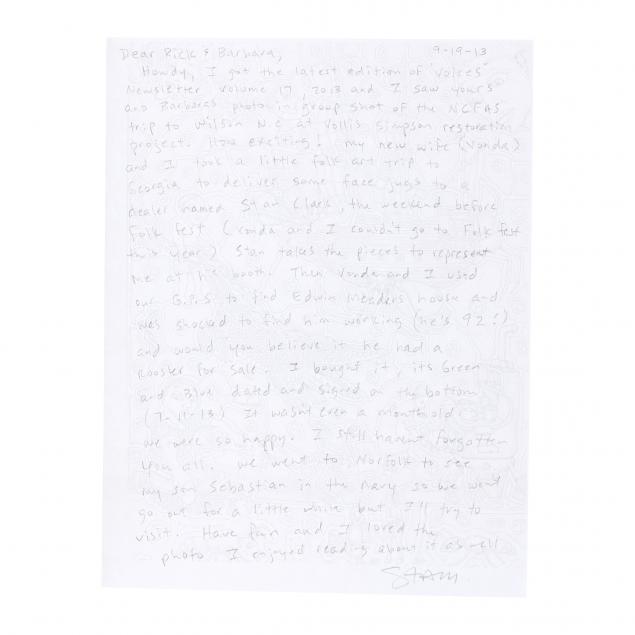 Dear Rick & Barbara, 9-19-13
Howdy, I got the latest edition of "Voices"
Newsletter volume 17, 2013 and I saw yours
and Barbaras photo in group shot of the NCFAS
trip to Wilson N.C at Vollis Simpson restoration
project. How exciting! my new wife (Vonda)
and I took a little folk art trip to
Georgia to deliver some face jugs to a
dealer named Stan Clark, the weekend before
folk fest (Vonda and I couldn't go to Folk fest
this year) Stan takes the pieces to represent
me at his booth. Then Vonda and I used
our G.P.S to find Edwin Meaders house and
was shocked to find him working (he's 92!)
and would you believe it he had a
Rooster for sale. I bought it, its Green
and Blue dated and signed on the bottom
(7-11-13) It wasn't even a month old.
we were so happy. I still havent forgotten
you all. we went to Norfolk to see
my son Sebastian in the Navy so we won't
go out for a little while but I'll try to
visit. Have fun and I loved the
photo. I enjoyed reading about it as well